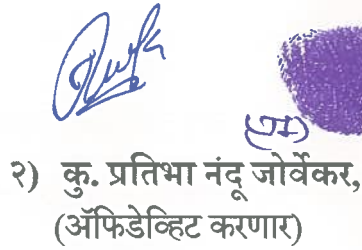 २) कु. प्रतिभा नंदू जोर्वेकर,
(ॲफिडेव्हिट करणार)